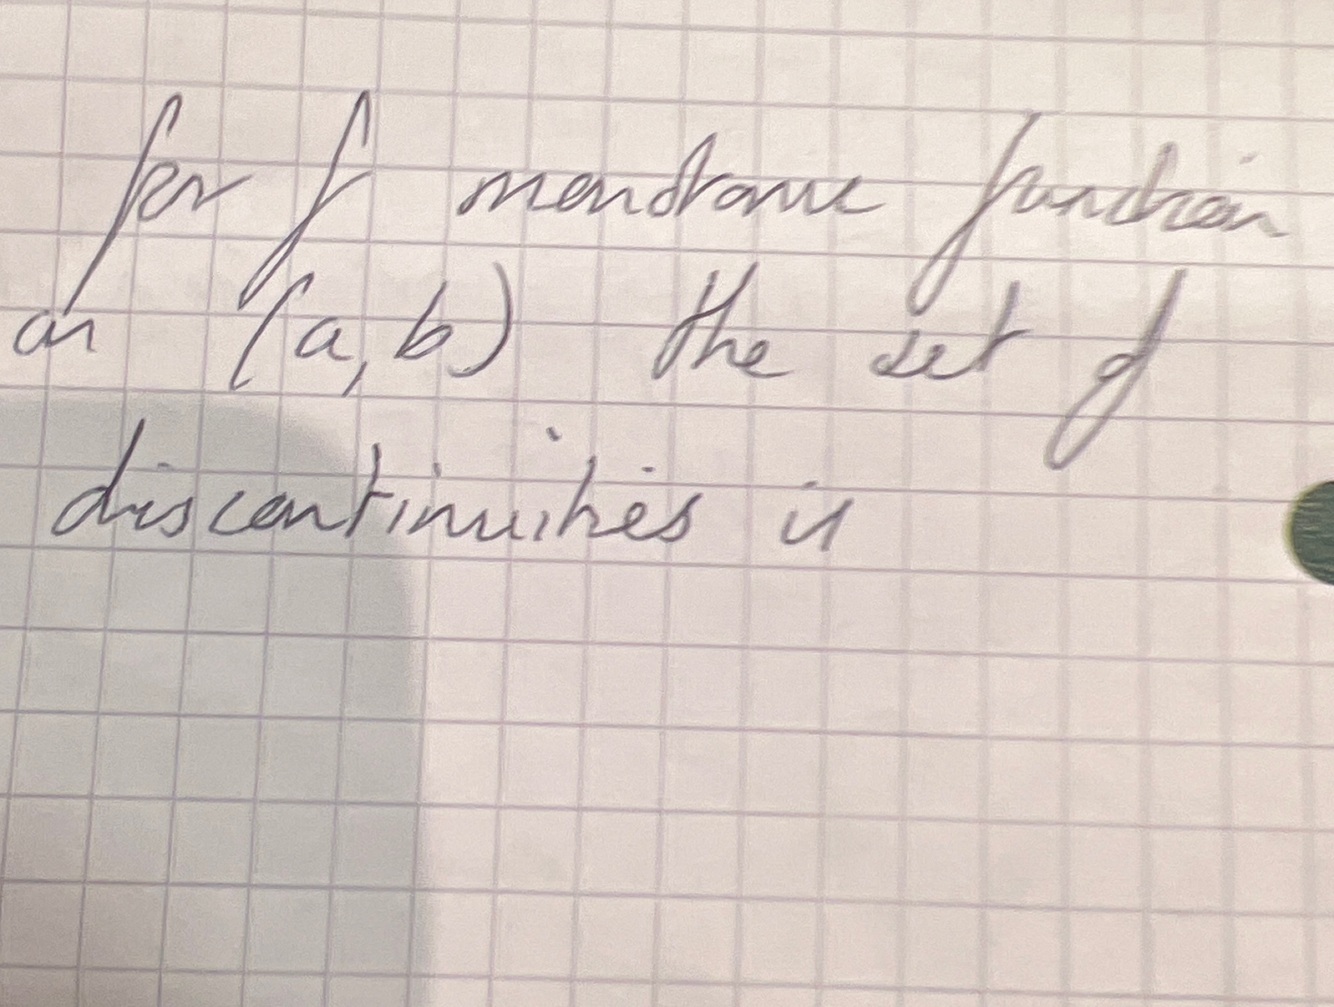 for f monotone function
on (a, b) the set of
discontinuities is